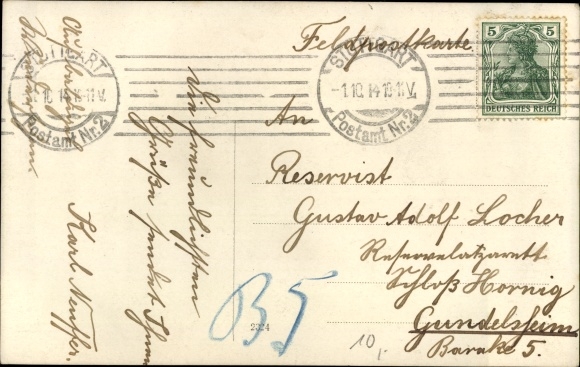 Feldpostkarte.
STUTTGART
-1.10.14 10-11 V.
Postamt Nr. 2
STUTTGART
10.14 11 V.
Postamt Nr. 2
5 5
DEUTSCHES REICH
An
Reservist
Gustav Adolf Locher
Reservelazarett
Schloß Hornig
Gundelsheim
Barake 5.
Die freundlichsten
Grüße sendet Ihnen
Karl Neuffer.
B5
2324
10,-